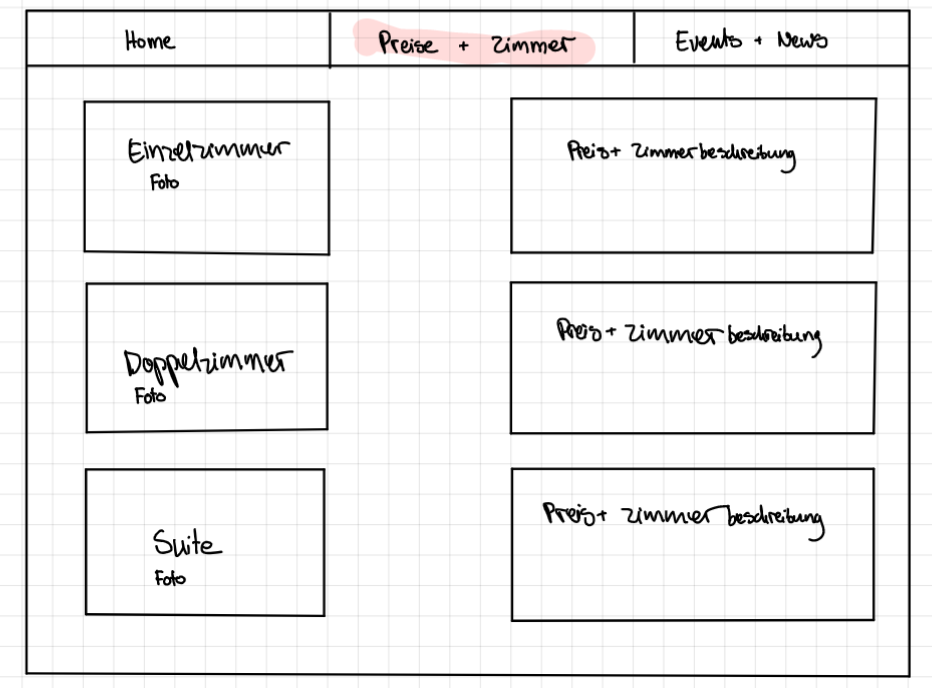 Home
Preise + Zimmer
Events + News
Einzelzimmer
Foto
Preis + Zimmerbeschreibung
Doppelzimmer
Foto
Preis + Zimmerbeschreibung
Suite
Foto
Preis + Zimmerbeschreibung